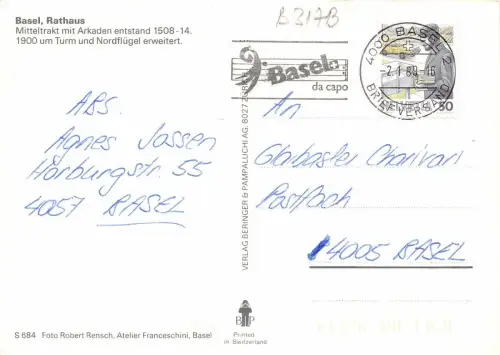 Basel, Rathaus
Mitteltrakt mit Arkaden entstand 1508-14.
1900 um Turm und Nordflügel erweitert.
B317B
Basel
da capo
4000 BASEL 2
-2.1.89-16
BRIEFVERSAND
50
ABS.
Agnes Jossen
Hörburgstr. 55
4057 BASEL
VERLAG BERINGER & PAMPALUCHI AG, 8027 ZÜRICH
An
Glaibaster Charivari
Postfach
4005 BASEL
S 684 Foto Robert Rensch, Atelier Franceschini, Basel
B P
Printed
in Switzerland